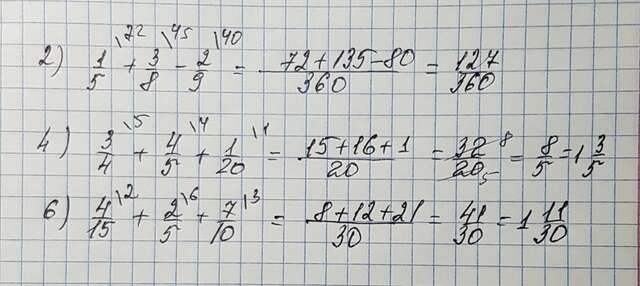 2) 1/5 \72 + 3/8 \45 - 2/9 \40 = 72+135-80/360 = 127/360
4) 3/4 \5 + 4/5 \4 + 1/20 \1 = 15+16+1/20 = 32/20 8/5 = 8/5 = 1 3/5
6) 4/15 \2 + 2/5 \6 + 7/10 \3 = 8+12+21/30 = 41/30 = 1 11/30